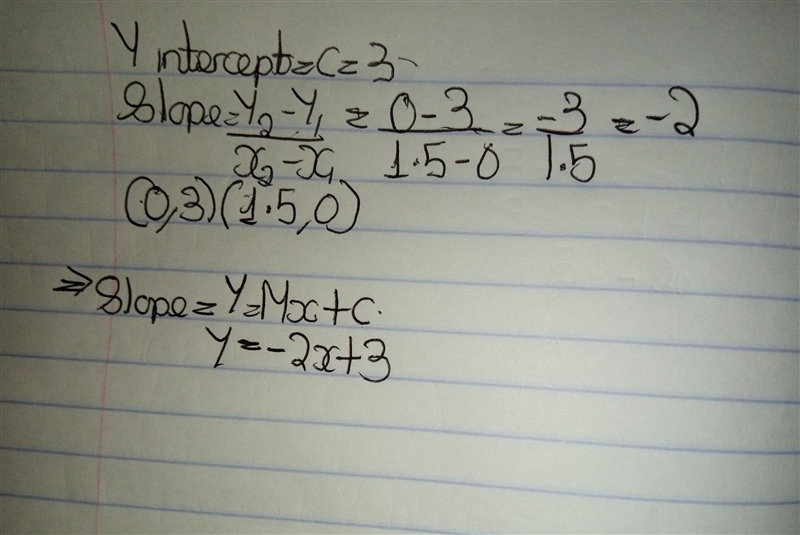 Y intercept=C=3
Slope=Y₂-Y₁/x₂-x₁ = 0-3/1.5-0 = -3/1.5 = -2
(0,3)(1.5,0)
⇒Slope=Y=Mx+C.
Y=-2x+3